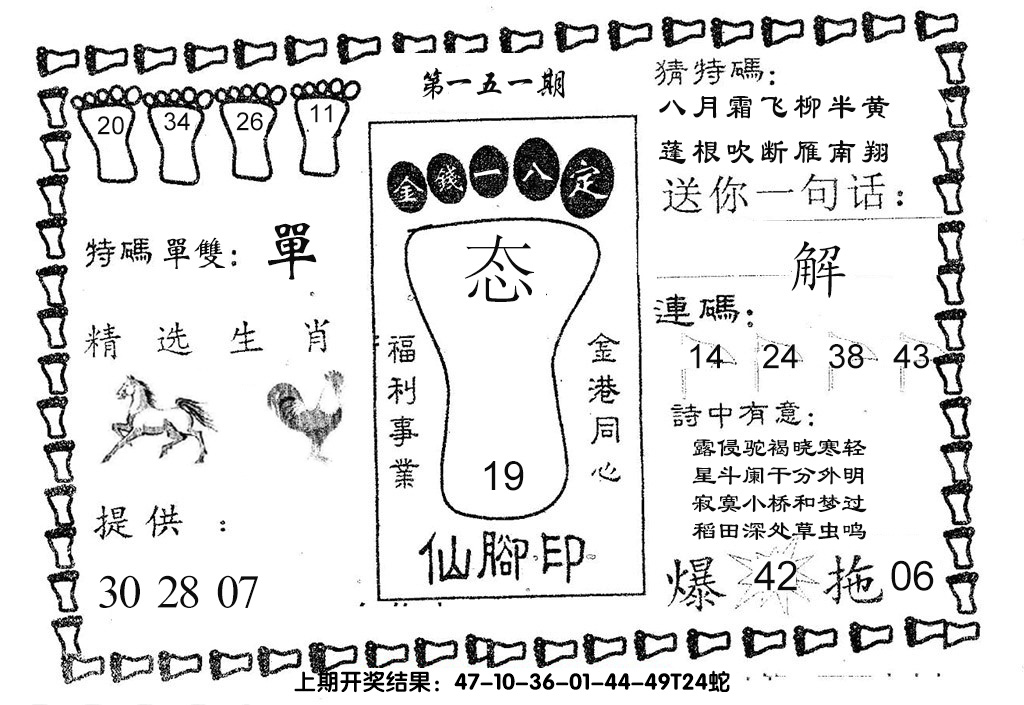 第一五一期
20 34 26 11
特碼單雙：單
精选生肖
提供：
30 28 07
金錢一八定
态
福利事業
金港同心
19
仙腳印
猜特碼：
八月霜飞柳半黄
蓬根吹断雁南翔
送你一句话：
解
連碼：
14 24 38 43
詩中有意：
露侵驼褐晓寒轻
星斗阑干分外明
寂寞小桥和梦过
稻田深处草虫鸣
爆 42 拖 06
上期开奖结果：47-10-36-01-44-49T24蛇